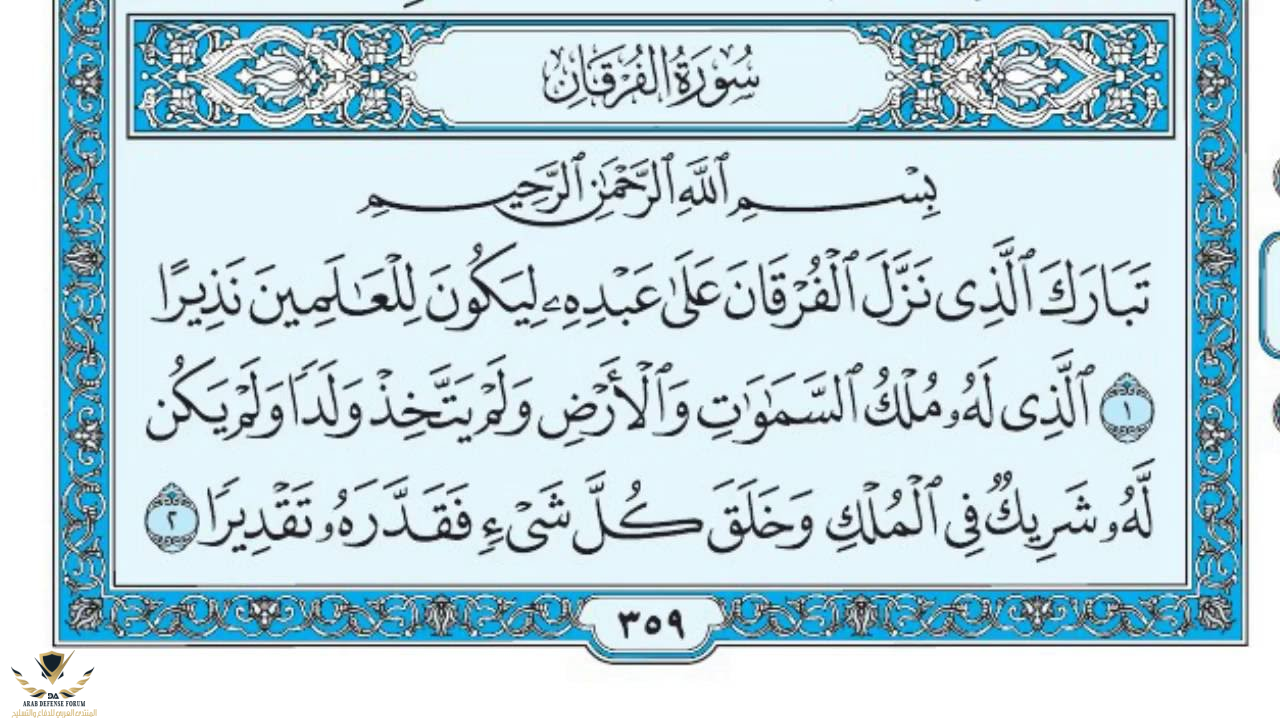 سُورَةُ الفُرْقَانِ
بِسْمِ ٱللَّهِ ٱلرَّحْمَٰنِ ٱلرَّحِيمِ
تَبَارَكَ ٱلَّذِى نَزَّلَ ٱلْفُرْقَانَ عَلَىٰ عَبْدِهِۦ لِيَكُونَ لِلْعَٰلَمِينَ نَذِيرًا
١ ٱلَّذِى لَهُۥ مُلْكُ ٱلسَّمَٰوَٰتِ وَٱلْأَرْضِ وَلَمْ يَتَّخِذْ وَلَدًا وَلَمْ يَكُن
لَّهُۥ شَرِيكٌ فِى ٱلْمُلْكِ وَخَلَقَ كُلَّ شَىْءٍ فَقَدَّرَهُۥ تَقْدِيرًا ٢
٣٥٩
DA
ARAB DEFENSE FORUM
المنتدى العربي للدفاع والتسليح